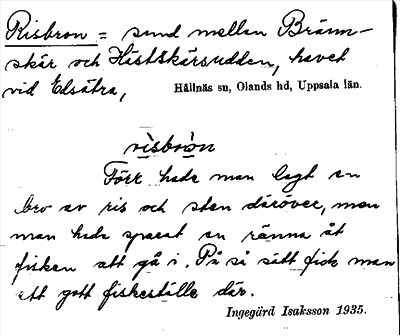 Risbron = sund mellan Bränn-
skär och Hästskärsudden, havet
vid Elsätra,
Hållnäs sn, Olands hd, Uppsala län.
risbròn
Förr hade man lagt en
bro av ris och sten däröver, men
man hade sparat en ränna åt
fisken att gå i. På så sätt fick man
ett gott fiskeställe där.
Ingegärd Isaksson 1935.